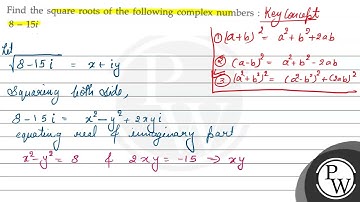 Find the square roots of the following complex numbers :
8 – 15i
Key Concept
① (a+b)² = a²+b²+2ab
② (a-b)² = a²+b²-2ab
③ (a²+b²)² = (a²-b²)²+(2ab)²
Let
√8-15i = x+iy
Squaring both side,
8-15i = x²-y²+2xyi
equating real & imaginary part
x²-y²=8 & 2xy=-15 → xy
PW